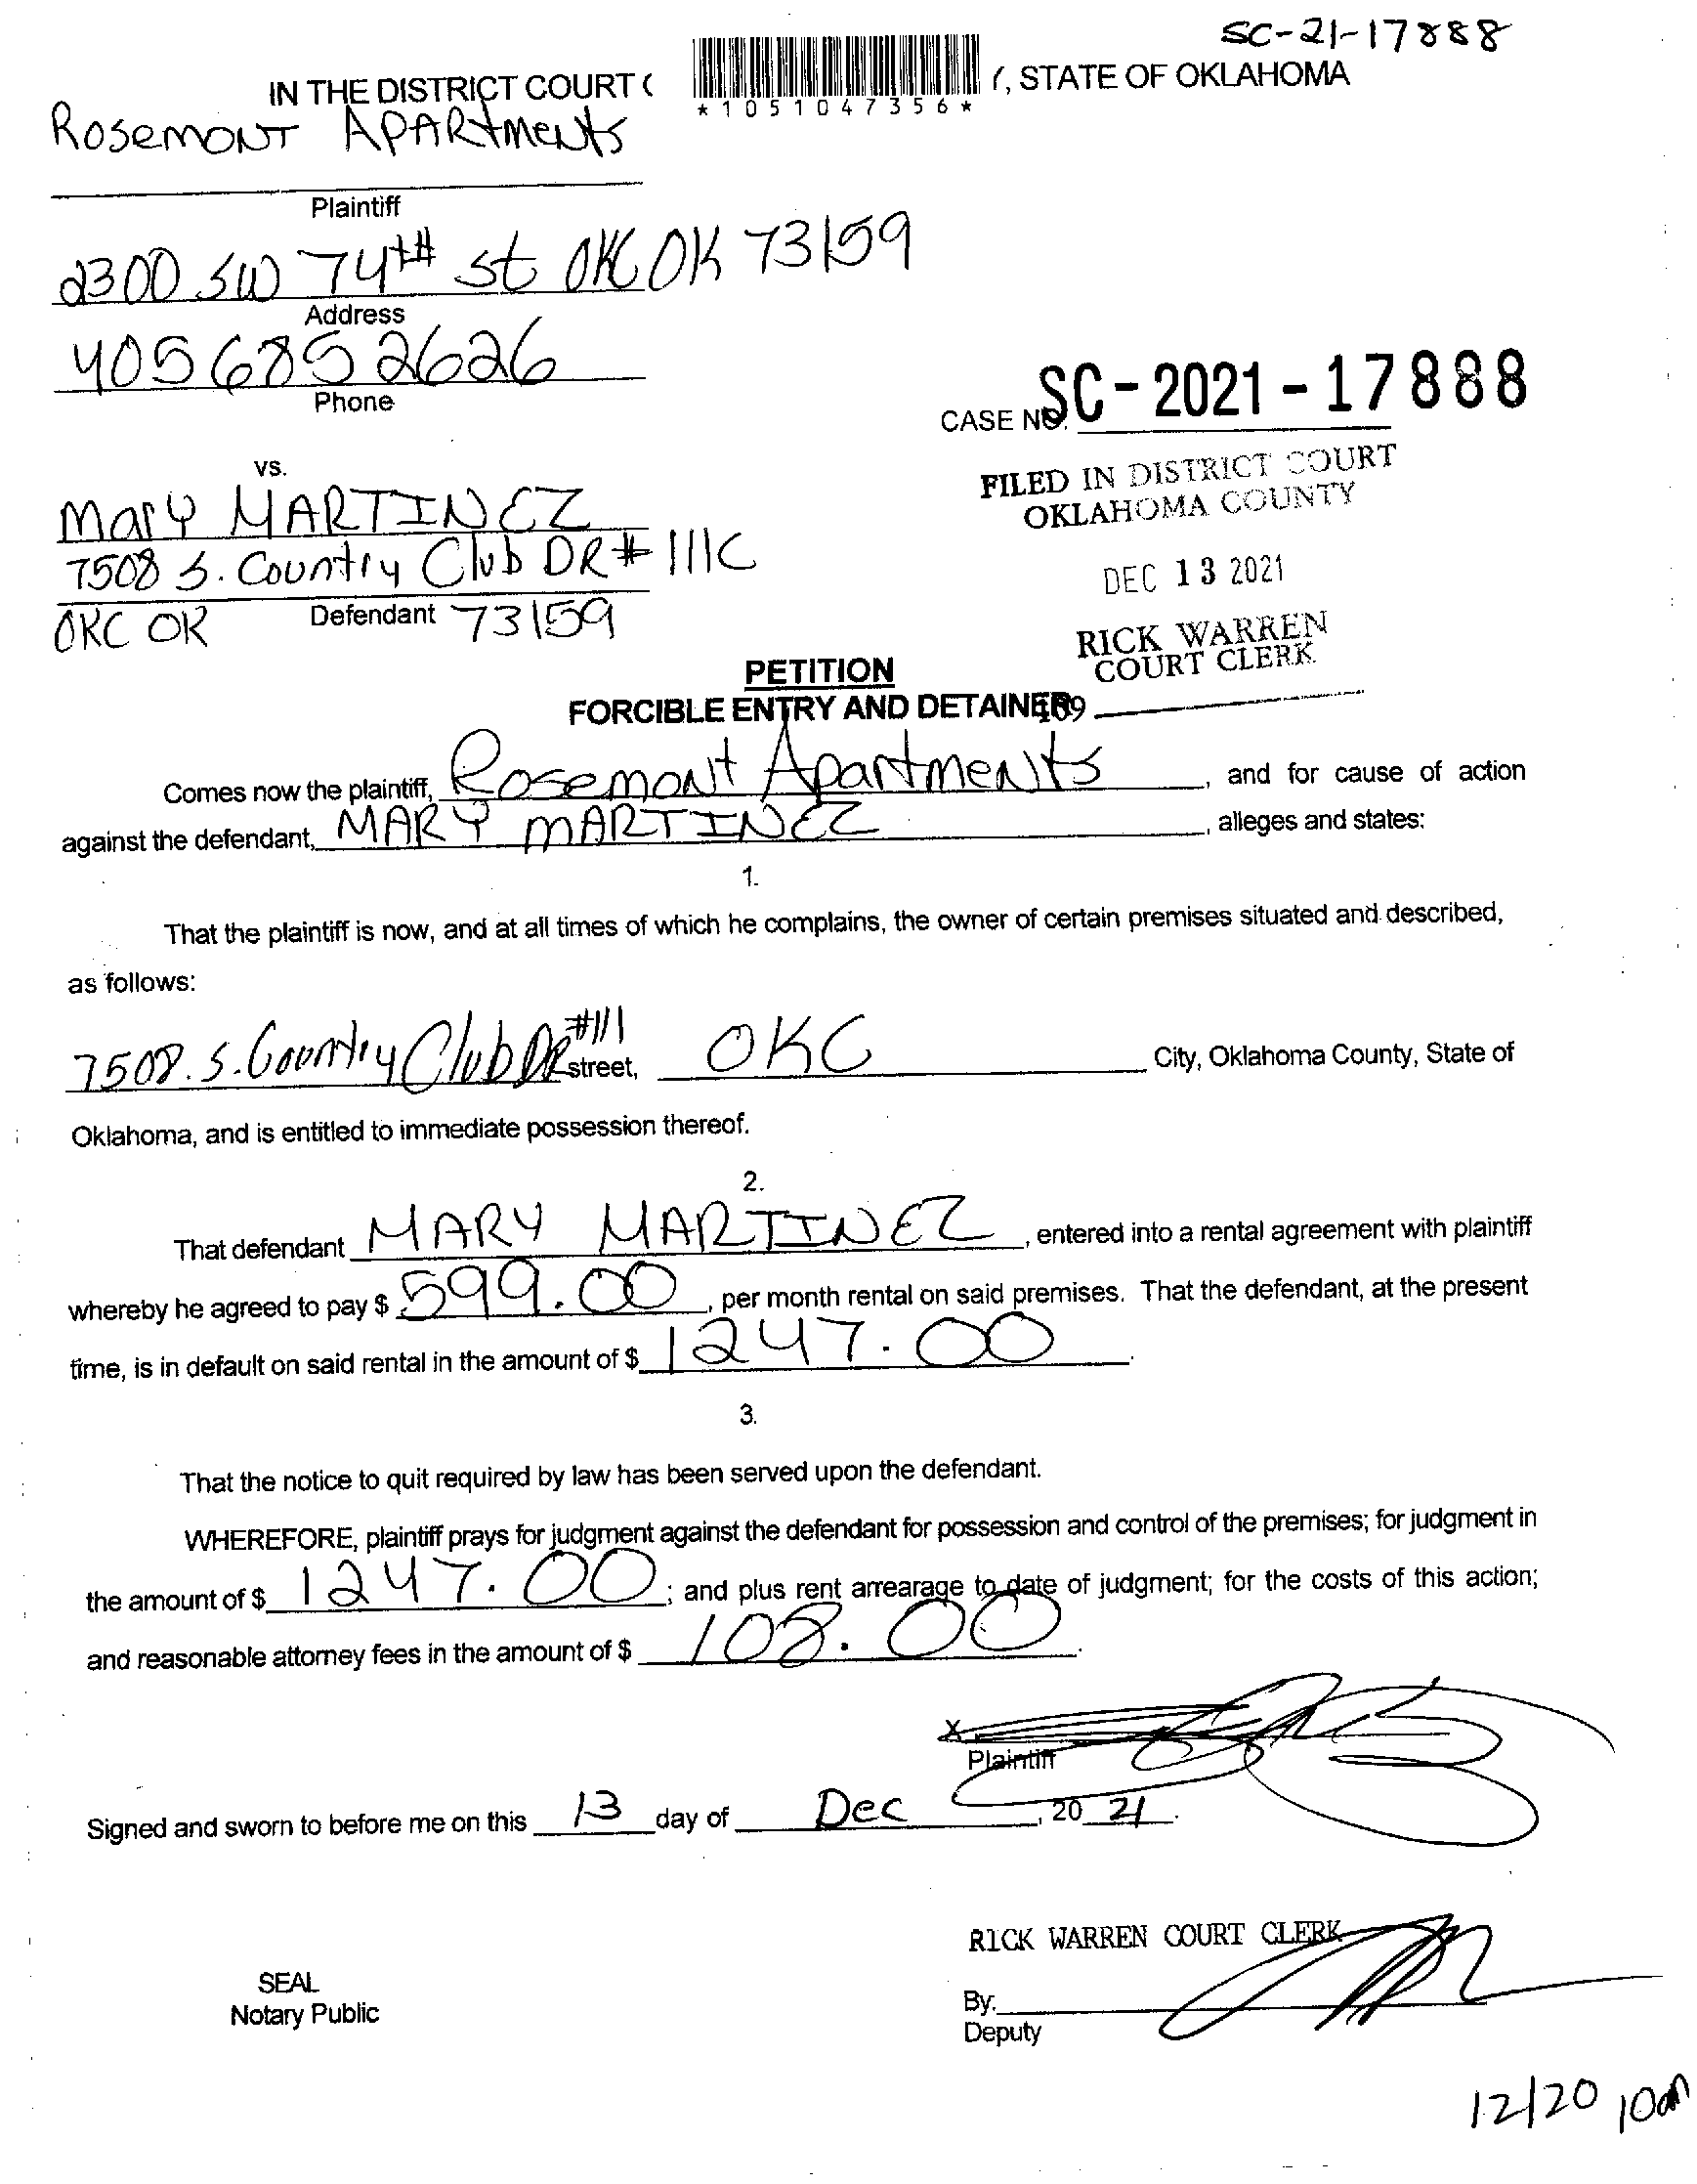 SC-21-17888
IN THE DISTRICT COURT
, STATE OF OKLAHOMA
*1051047356*
Rosemont Apartments
Plaintiff
2300 SW 74th st OKC OK 73159
Address
405 685 2626
Phone
CASE NO. SC-2021-17888
vs.
FILED IN DISTRICT COURT
OKLAHOMA COUNTY
Mary MARTINEZ
7508 S. Country Club DR # 111C
DEC 13 2021
Defendant
OKC OK 73159
RICK WARREN
COURT CLERK
PETITION
FORCIBLE ENTRY AND DETAINER
Comes now the plaintiff, Rosemont Apartments, and for cause of action
against the defendant, MARY MARTINEZ, alleges and states:
1.
That the plaintiff is now, and at all times of which he complains, the owner of certain premises situated and described,
as follows:
7508. S. Country Club DR #111 street, OKC City, Oklahoma County, State of
Oklahoma, and is entitled to immediate possession thereof.
2.
That defendant MARY MARTINEZ, entered into a rental agreement with plaintiff
whereby he agreed to pay $ 599.00, per month rental on said premises. That the defendant, at the present
time, is in default on said rental in the amount of $ 1247.00.
3.
That the notice to quit required by law has been served upon the defendant.
WHEREFORE, plaintiff prays for judgment against the defendant for possession and control of the premises; for judgment in
the amount of $ 1247.00; and plus rent arrearage to date of judgment; for the costs of this action;
and reasonable attorney fees in the amount of $ 108.00.
X
Plaintiff
Signed and sworn to before me on this 13 day of Dec, 20 21.
RICK WARREN COURT CLERK
SEAL
Notary Public
By:
Deputy
12/20 10am